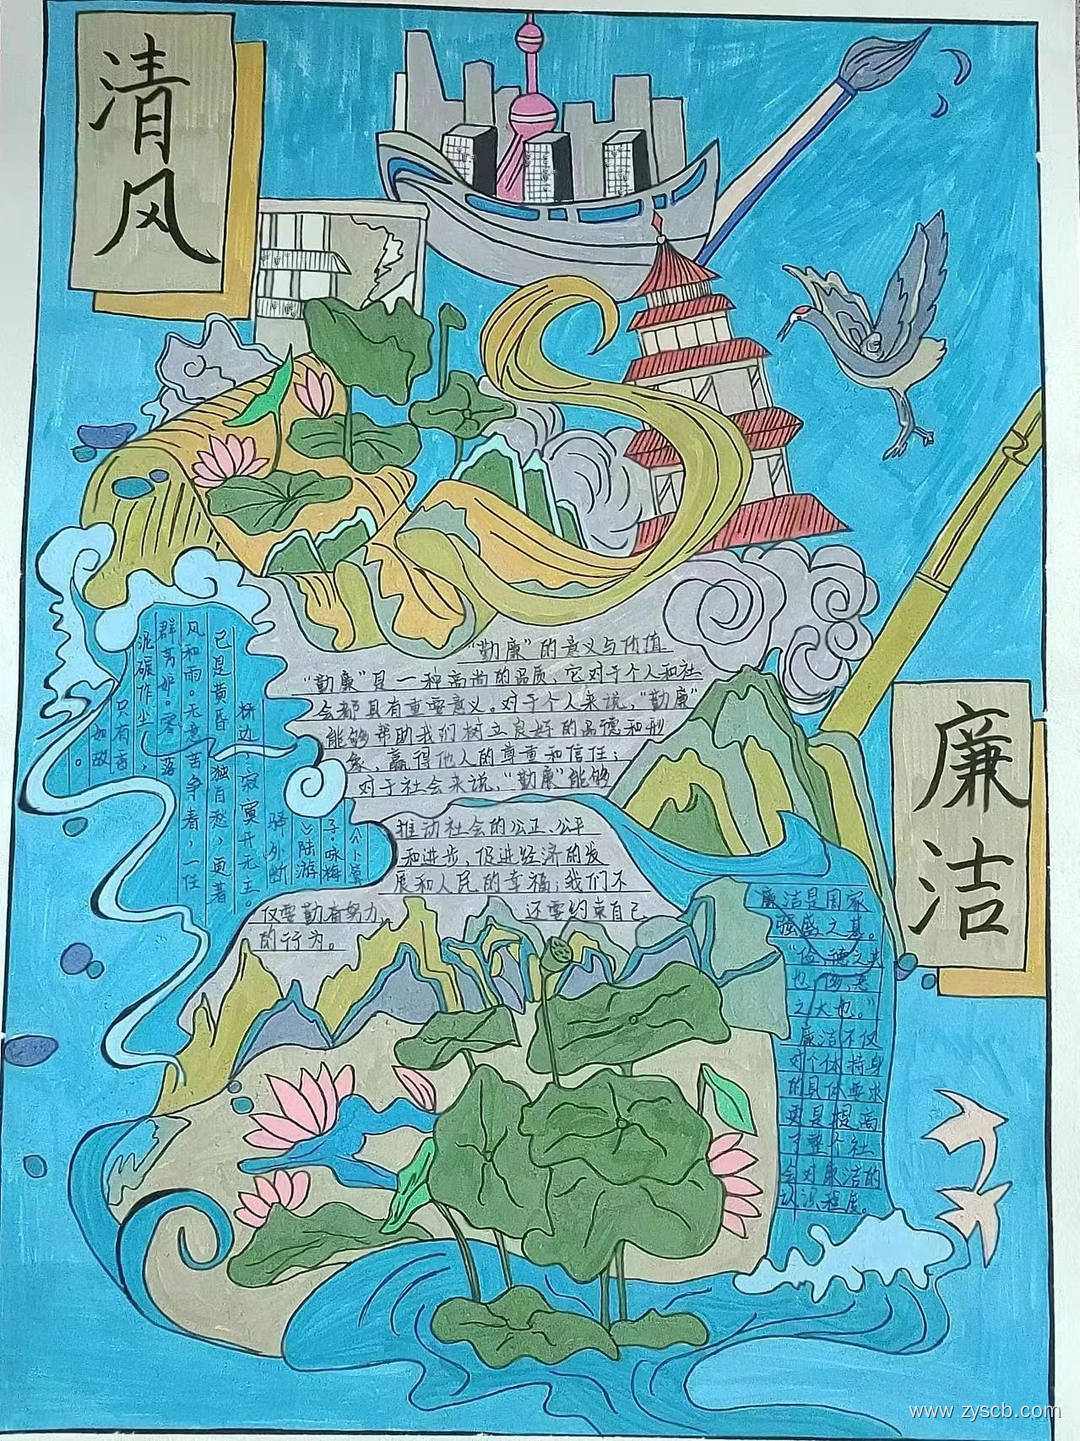 清风
"勤廉"的意义与价值
"勤廉"是一种高尚的品质,它对于个人和社
会都具有重要意义。对于个人来说,"勤廉"
能够帮助我们树立良好的品德和形
象,赢得他人的尊重和信任;
对于社会来说,"勤廉"能够
推动社会的公正、公平
和进步,促进经济的发
展和人民的幸福;我们不
仅要勤奋努力, 还要约束自己
的行为。
卜算
子·咏梅
陆游
驿外断
桥边,寂寞开无主。
已是黄昏独自愁,更著
风和雨。无意苦争春,一任
群芳妒。零落
泥碾作尘,
只有香
如故。
廉洁
廉洁是国家
强盛之基。
"俭,德之共
也;侈,恶
之大也。"
廉洁不仅
对个体持身
的具体要求
更是提高
了整个社
会对廉洁的
认识程度。
www.zyscb.com